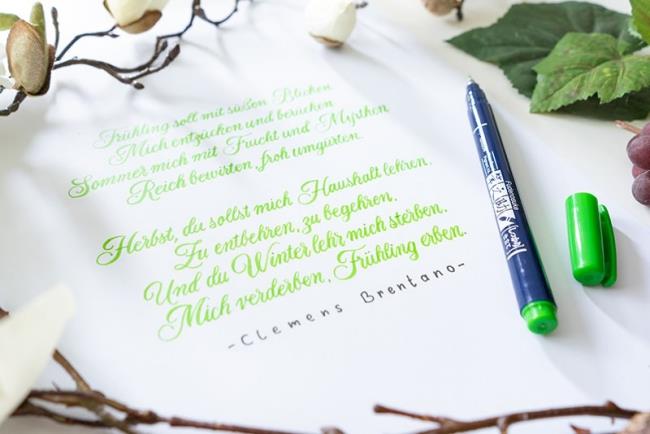 Frühling soll mit süßen Blicken
Mich entzücken und berücken
Sommer mich mit Frucht und Myrthen
Reich bewirten, froh umgürten.
Herbst, du sollst mich Haushalt lehren,
Zu entbehren, zu begehren,
Und du Winter lehr mich sterben,
Mich verderben, Frühling erben.
-Clemens Brentano-
Fudenosuke